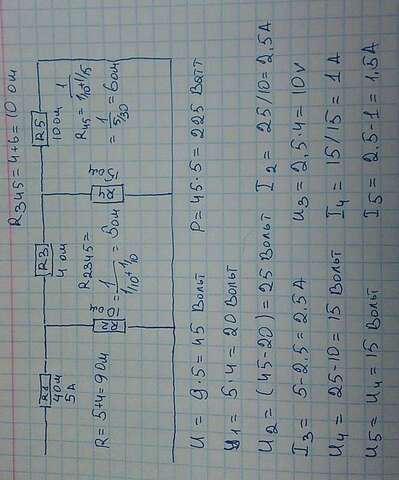 R345 = 4+6 = 10 ом
R1
4ом
5А
R3
4 ом
R5
10ом
R2
10
ом
R4
R2345 =
= 1/(1/10+1/10) = 5ом
R45 = 1/(1/10+1/15)
= 1/(5/30) = 6ом
R = 5+4 = 9ом
U = 9·5 = 45 Вольт P = 45·5 = 225 Ватт
U1 = 5·4 = 20 Вольт
U2 = (45-20) = 25 Вольт I2 = 25/10 = 2,5А
I3 = 5-2.5 = 25А U3 = 2,5·4 = 10V
U4 = 25-10 = 15 Вольт I4 = 15/15 = 1 А
U5 = U4 = 15 Вольт I5 = 2.5-1 = 1,5А